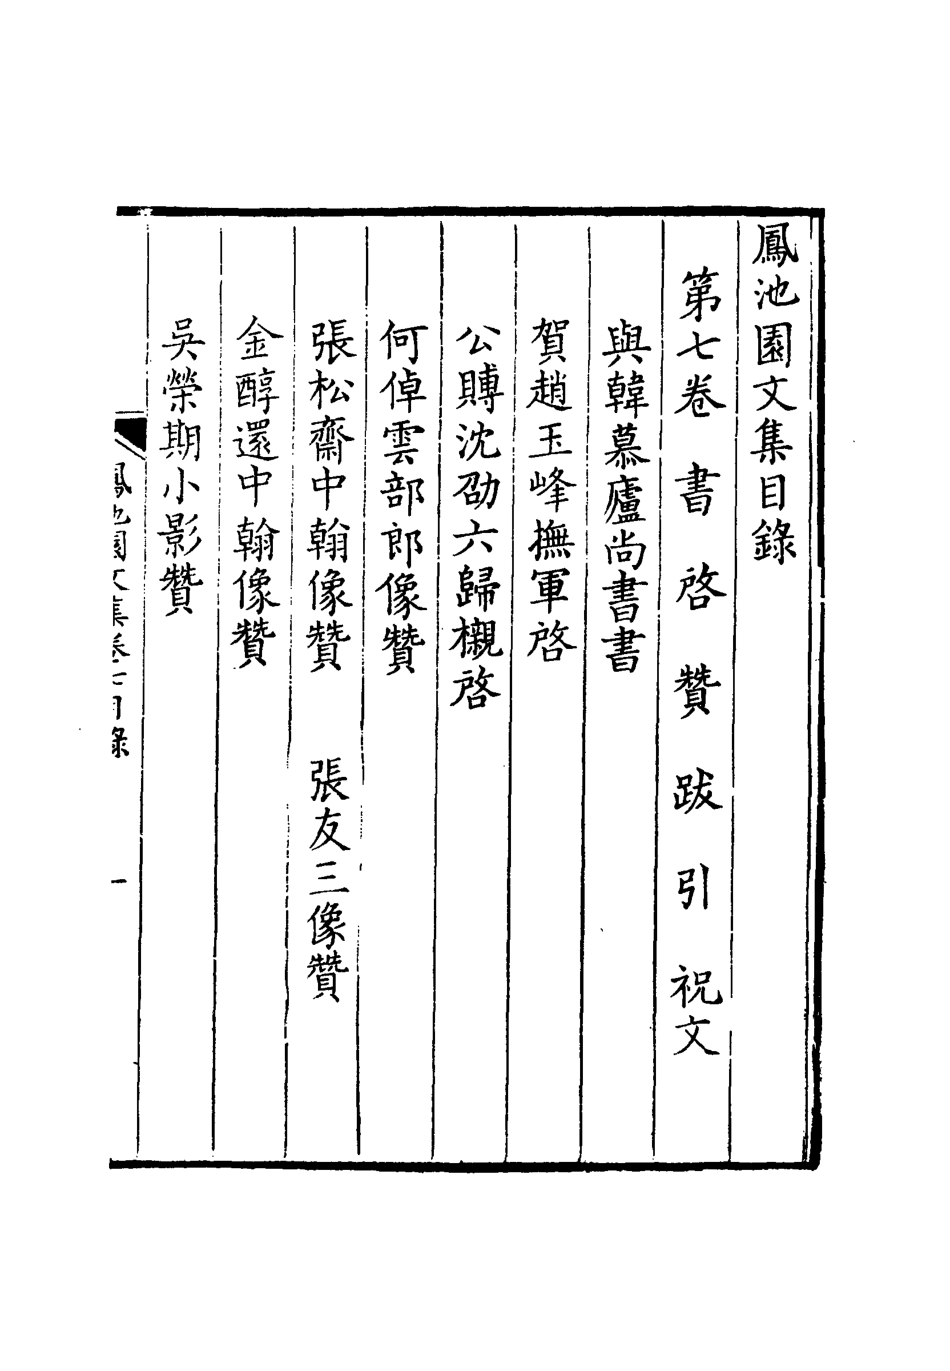 鳳池園文集目錄
第七卷 書 啓 贊 跋 引 祝文
與韓慕廬尚書書
賀趙玉峰撫軍啓
公賻沈劭六歸櫬啓
何倬雲部郎像贊
張松齋中翰像贊 張友三像贊
金醇還中翰像贊
吳榮期小影贊
鳳池園文集卷七目錄 一